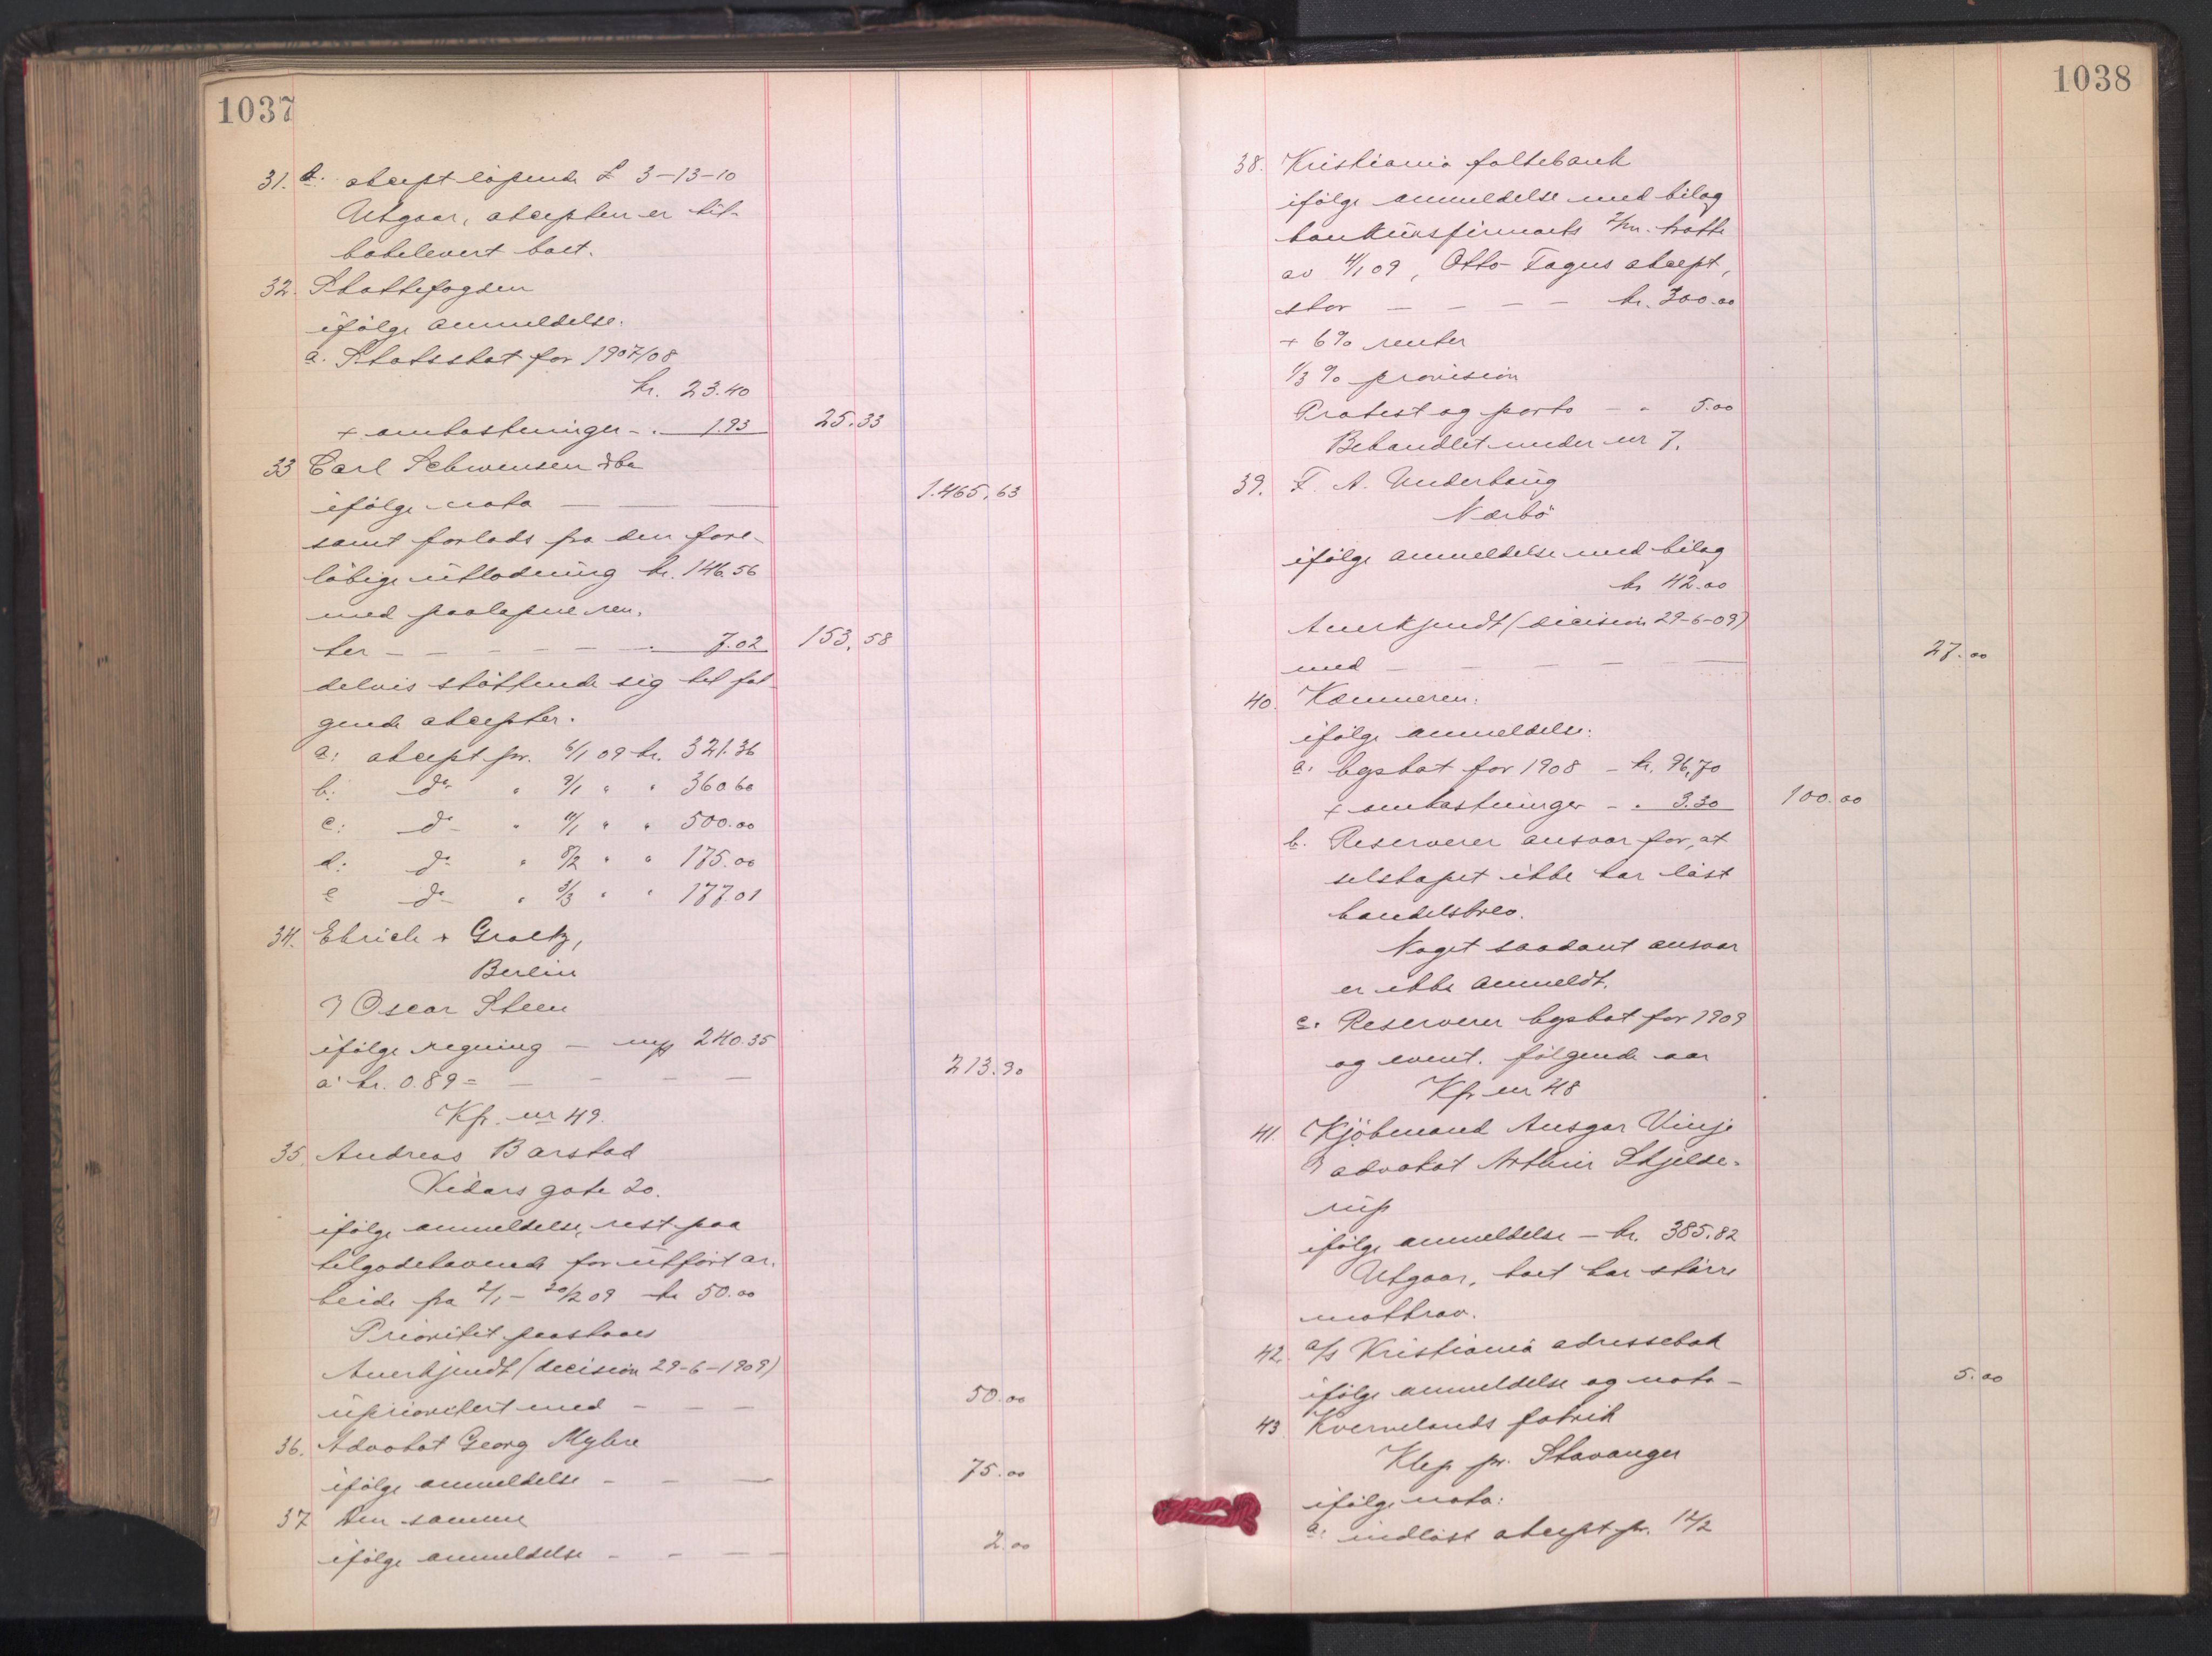 1037
31. d: aksept løpende £ 3-13-10
Utgaar, aksepten er til-
bakelevert boet.
32. Skattefogden
ifølge anmeldelse.
a. Statsskat for 1907/08
kr. 23.40
+ omkostninger - . 1.93 25.33
33 Carl Schwensen & Co
ifølge nota — — — 1.465,63
samt forlods fra den fore-
løbige utlodning kr. 146.56
med paaløpne ren-
ter - - - - - - . 7.02 153,58
delvis støttende sig til føl-
gende aksepter.
a: aksept pr. 6/1 09 kr. 321.36
b: do " 9/1 " " 360.60
c: do " 11/1 " " 500.00
d: do " 8/2 " " 175.00
e do " 3/3 " " 177.01
34. Ehrich & Graetz,
Berlin
v/ Oscar Steen
ifølge regning - mk 240.35
a kr. 0.89 = - - - - 213.90
Kfr. nr 49.
35. Andreas Barstad
Vidars gate 20.
ifølge anmeldelse, rest paa
tilgodehavende for utført ar-
beide fra 2/1 - 20/2 09 kr 50.00
Prioritet paastaaes
Anerkjendt (decision 29-6-1909)
uprioritert med - - - 50.00
36. Advokat Georg Myhre
ifølge anmeldelse - - - 75.00
37 Den samme
ifølge anmeldelse - - - 2.00
1038
38. Kristiania folkebank
ifølge anmeldelse med bilag
konkursfirmaets 2/m. tratte
av 4/1 09, Otto Fagus aksept,
stor - - - - kr. 300.00
+ 6% renter
1/3 % provision
Protest og porto - " 5.00
Behandlet under nr 7.
39. F. A. Underhaug
Nærbø
ifølge anmeldelse med bilag
kr 42.00
Anerkjendt (decision 29-6-09)
med - - - - - - 27.00
40. Kæmneren.
ifølge anmeldelse:
a: byskat for 1908 - kr. 96,70
+ omkostninger - " 3.30 100.00
b. Reserverer ansvar for, at
selskapet ikke har løst
handelsbrev.
Noget saadant ansvar
er ikke anmeldt.
c. Reserverer byskat for 1909
og event. følgende aar
Kfr nr 48
41. Kjøbmand Ansgar Vinje
v/ advokat Arthur Skjelde-
rup
ifølge anmeldelse - kr. 385.82
Utgaar, boet har større
motkrav.
42. A/S Kristiania adressebok
ifølge anmeldelse og nota - 5.00
43 Kvernelands fabrik
Klep pr. Stavanger
ifølge nota:
a: indløst aksept pr. 12/2